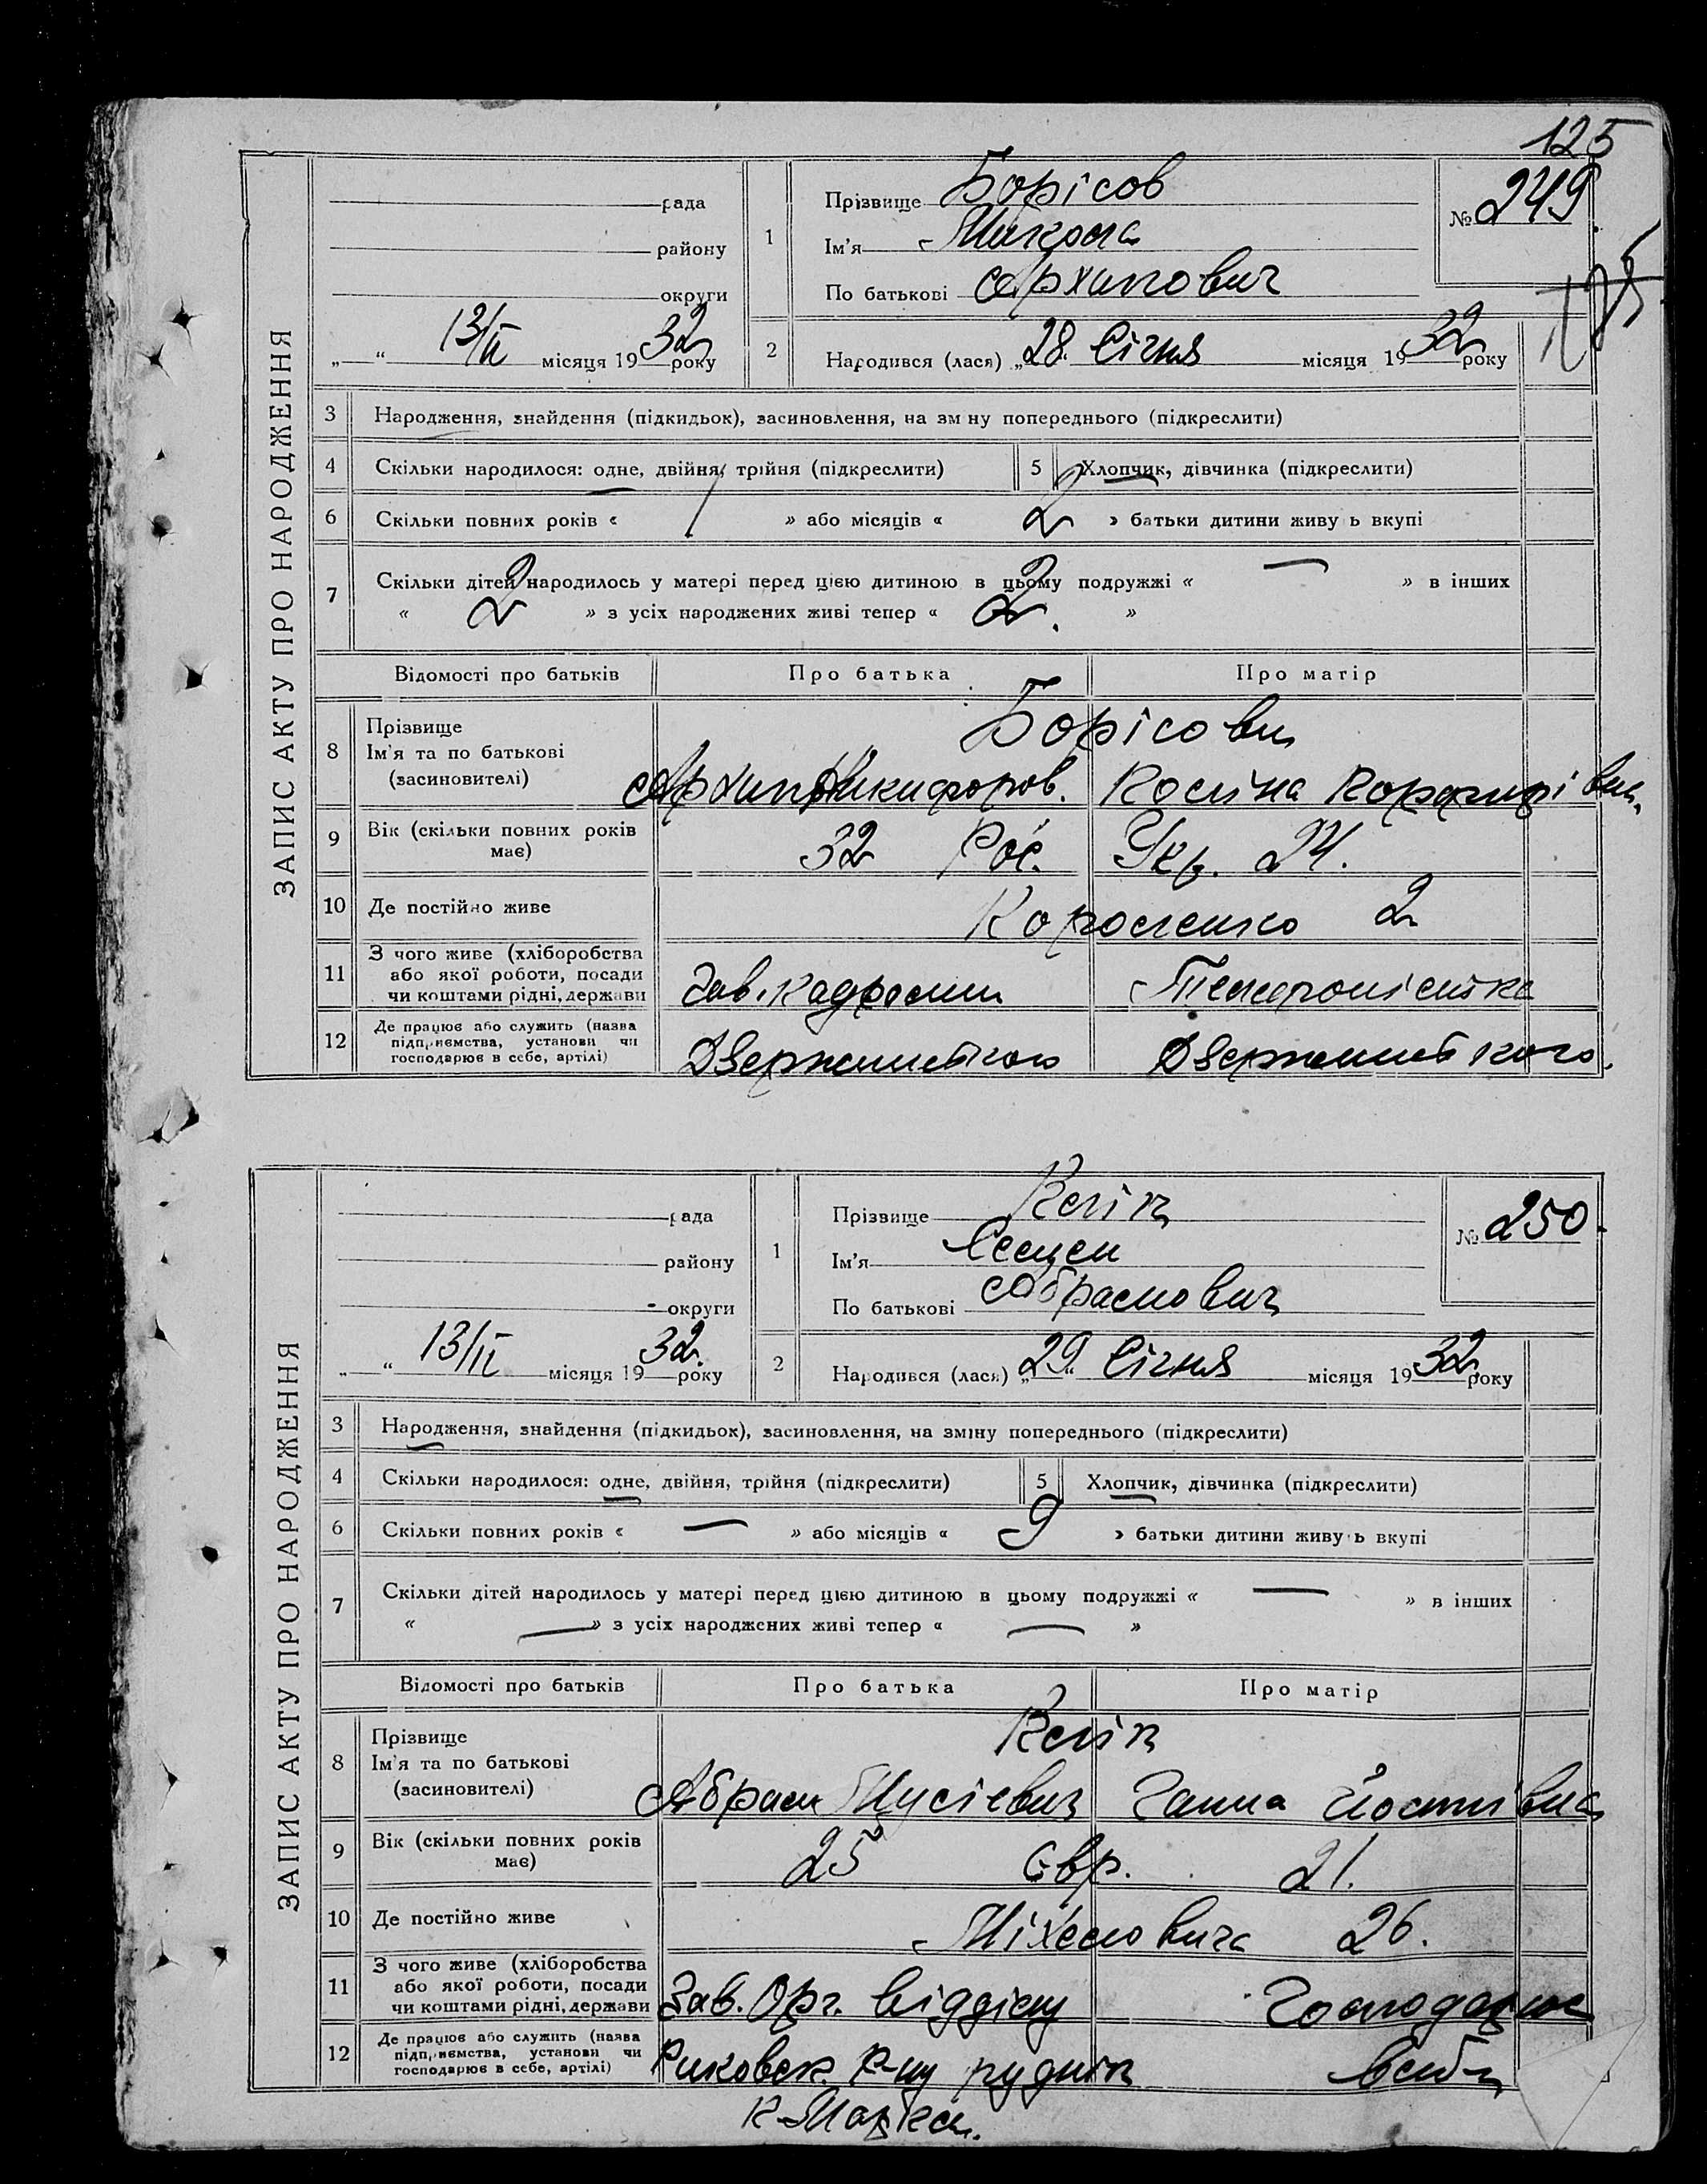 125
ЗАПИС АКТУ ПРО НАРОДЖЕННЯ
рада
району
округи
„ “ 13/II місяця 1932 року
1
Прізвище Борісов
Ім'я Микола
По батькові Архипович
№ 249
125
2
Народився (лася) „28. Січня місяця 1932 року
3 Народження, знайдення (підкидьок), засиновлення, на зм ну попереднього (підкреслити)
4 Скільки народилося: одне, двійня, трійня (підкреслити) 5 Хлопчик, дівчинка (підкреслити)
6 Скільки повних років « / » або місяців « 2 » батьки дитини живу ь вкупі
7 Скільки дітей народилось у матері перед цією дитиною в цьому подружжі « — » в інших
« 2 » з усіх народжених живі тепер « 2. »
Відомості про батьків Про батька Про матір
8 Прізвище
Ім'я та по батькові
(засиновителі)
Борісови
Архип Никифоров.
9 Вік (скільки повних років
має)
32 Рос. Укр. 24.
10 Де постійно живе Короленко 2
11 З чого живе (хліборобства
або якої роботи, посади
чи коштами рідні, держави
Зав. кадрами Телефоністка
12 Де працює або служить (назва
підприємства, установи чи
господарює в себе, артілі)
ЗАПИС АКТУ ПРО НАРОДЖЕННЯ
рада
району
округи
„ “ 13/II місяця 1932. року
1
Прізвище Келік
Ім'я
По батькові Абрамович
№ 250.
2
Народився (лася) „29“ Січня місяця 1932 року
3 Народження, знайдення (підкидьок), засиновлення, на зміну попереднього (підкреслити)
4 Скільки народилося: одне, двійня, трійня (підкреслити) 5 Хлопчик, дівчинка (підкреслити)
6 Скільки повних років « — » або місяців « 9 » батьки дитини живу ь вкупі
7 Скільки дітей народилось у матері перед цією дитиною в цьому подружжі « — » в інших
« — » з усіх народжених живі тепер « — »
Відомості про батьків Про батька Про матір
8 Прізвище
Ім'я та по батькові
(засиновителі)
Келік
Абрам Мусієвич Ганна
9 Вік (скільки повних років
має)
25 Євр. 21.
10 Де постійно живе 26.
11 З чого живе (хліборобства
або якої роботи, посади
чи коштами рідні, держави
Зав. Орг. відділу Господарює
12 Де працює або служить (назва
підприємства, установи чи
господарює в себе, артілі)
Риковськ р-ну рудник
К-Маркса.